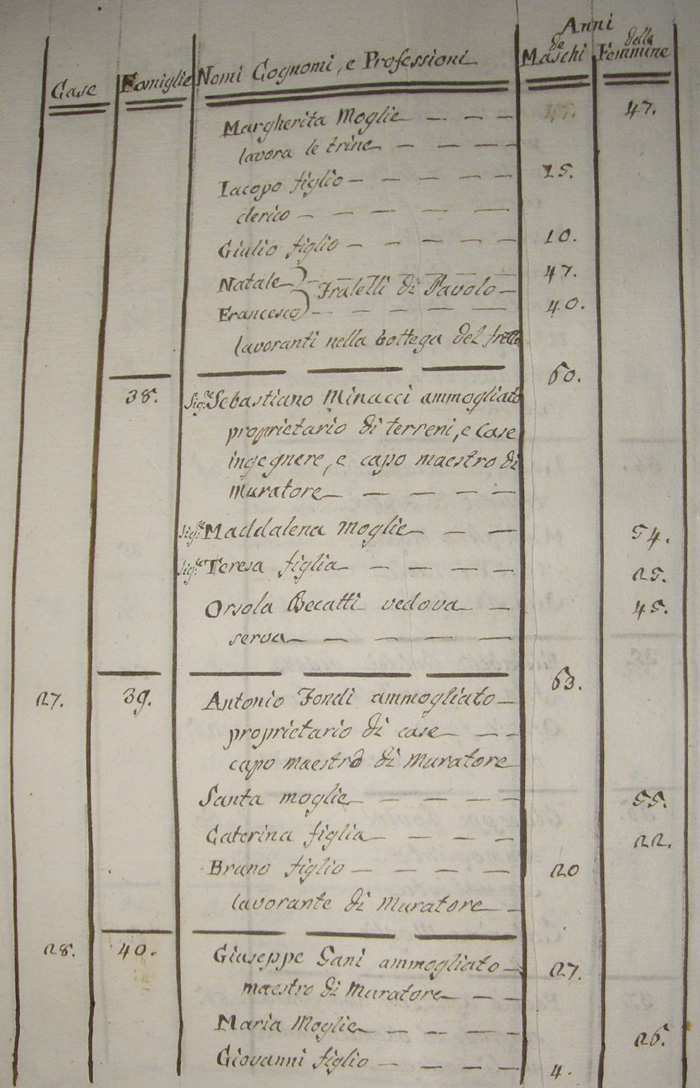 Anni
Case Famiglie Nomi Cognomi, e Professioni de Maschi della Femmine
Margherita Moglie — — — 47.
lavora le trine — — — —
Iacopo figlio — — — — 15.
clerico — — — — —
Giulio figlio — — — — 10.
Natale 47.
Fratelli di Pavolo —
Francesco 40.
lavoranti nella bottega del
38. Sig.r Sebastiano Minacci ammogliato 60.
proprietario di terreni, e case
ingegnere, e capo maestro di
Muratore — — — —
Sig.ra Maddalena moglie — — — 54.
Sig.ra Teresa figlia — — — — 25.
Orsola Becatti vedova — — 45.
serva — — — — —
27. 39. Antonio Fondi ammogliato — 63.
proprietario di case — — —
capo maestro di Muratore
Santa moglie — — — — 55.
Caterina figlia — — — — 22.
Bruno figlio — — — — 20
lavorante di Muratore —
28. 40. Giuseppe Gani ammogliato — 27.
maestro di Muratore — — —
Maria Moglie — — — — 26.
Giovanni figlio — — — — 4.